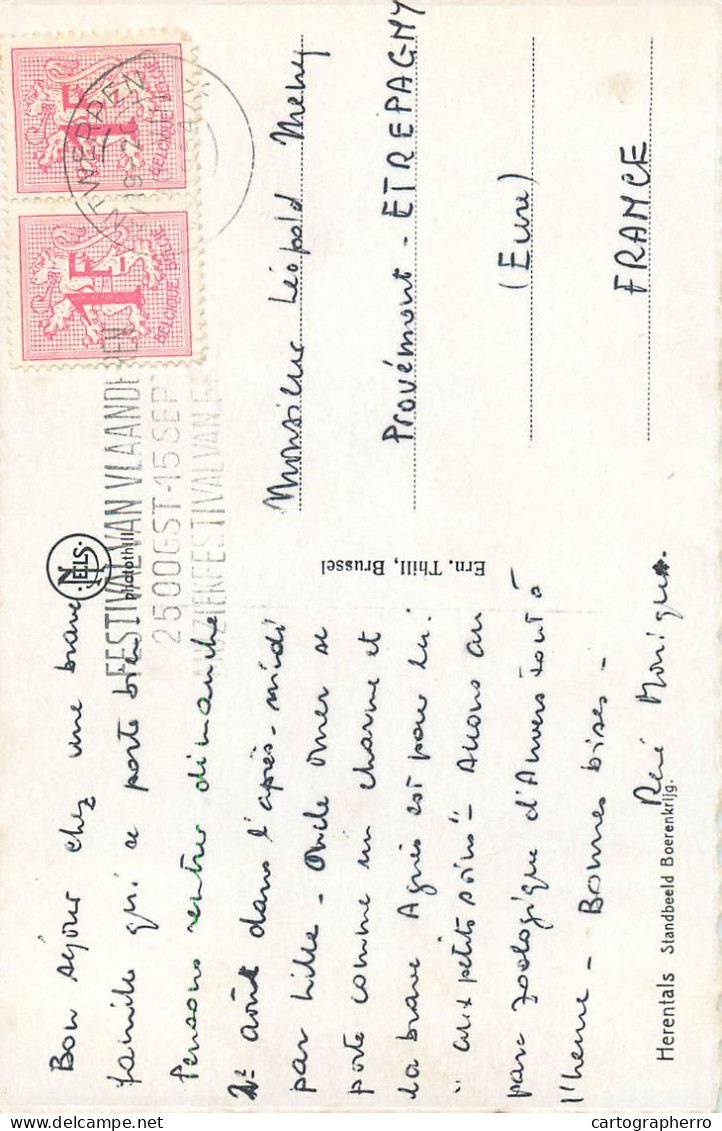 Bon séjour chez une brave
famille qui se porte bien
Pensons rentrer dimanche
2 août dans l'après-midi
par Lille - Oncle Omer se
porte comme un charme et
la brave Agnès est pour lui
"aux petits soins" - Allons au
parc zoologique d'Anvers tout à
l'heure - Bonnes bises -
René Monique.
Herentals Standbeeld Boerenkrijg.
NELS
photothill
Ern. Thill, Brussel
1F
BELGIQUE-BELGIE
1F
BELGIQUE-BELGIE
ANTWERPEN
FESTIVAL VAN VLAANDEREN
25 OOGST - 15 SEP
Monsieur Léopold
Provémont - ETREPAGNY
(Eure)
FRANCE
cartographerro